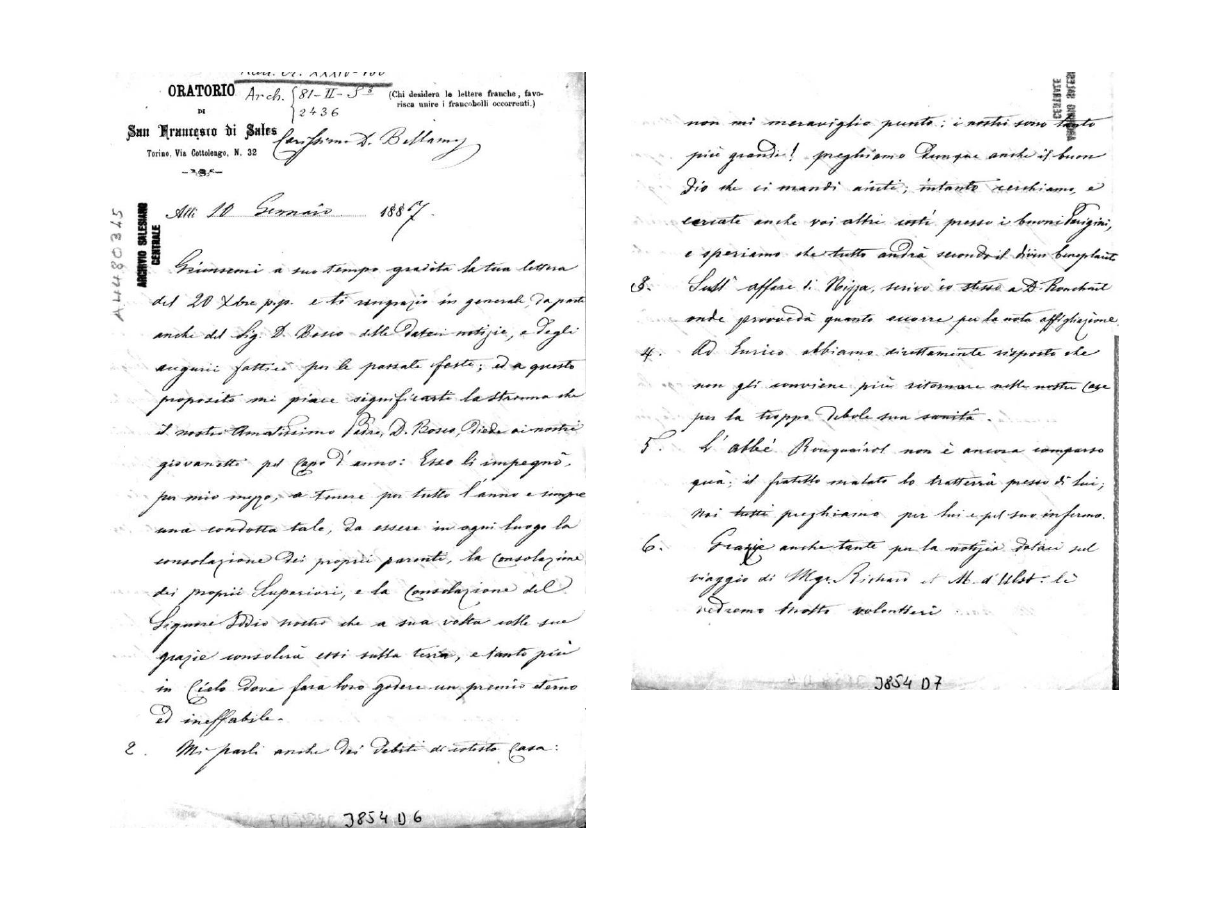 ORATORIO
DI
San Francesco di Sales
Torino, Via Cottolengo, N. 32
Arch. 81-II-S
2436
(Chi desidera le lettere franche, favo-
risca unire i francobolli occorrenti.)
Carissimo D. Bellamy
Addì 10 Gennaio 1887.
A4480315
ARCHIVIO SALESIANO
CENTRALE
Giunsemi a suo tempo gradita la tua lettera
del 20 Xbre p.p. e ti ringrazio in general da parte
anche del Sig. D. Bosco delle dateci notizie, e degli
augurii fattici per le passate feste; ed a questo
proposito mi piace significarti la strenna che
il nostro Amatissimo Padre, D. Bosco, diede ai nostri
giovanetti pel Capo d'anno: Esso li impegnò,
per mio mezzo, a tenere per tutto l'anno e sempre
una condotta tale, da essere in ogni luogo la
consolazione dei proprii parenti, la Consolazione
dei proprii Superiori, e la Consolazione del
Signore Iddio nostro che a sua volta colle sue
grazie consolerà essi sulla terra, e tanto più
in Cielo dove farà loro godere un premio eterno
ed ineffabile.
2. Mi parli anche dei debiti di cotesta Casa:
J854 D6
CENTRALE
ARCHIVIO SALESIANO
non mi meraviglio punto: i nostri sono tanto
più grandi! preghiamo dunque anche il buon
Dio che ci mandi aiuti; intanto cerchiamo, e
cercate anche voi altri costì presso i buoni Parigini,
e speriamo che tutto andrà secondo il divin beneplacito
3. Sull' affare di Nizza, scrivo io stesso a D. Ronchail
onde provveda quanto occorre per la nota affigliazione.
4. Ad Enrico abbiamo direttamente risposto che
non gli conviene più ritornare nelle nostre Case
per la troppo debole sua sanità.
5. L'abbé Rouquairol non è ancora comparso
quà; il fratello malato lo tratterrà presso di lui;
Noi tutti preghiamo per lui e pel suo infermo.
6. Grazie anche tante per la notizia dataci sul
viaggio di Mgr. Richard et M. d'Ulst: li
vedremo molto volontieri
J854 D7